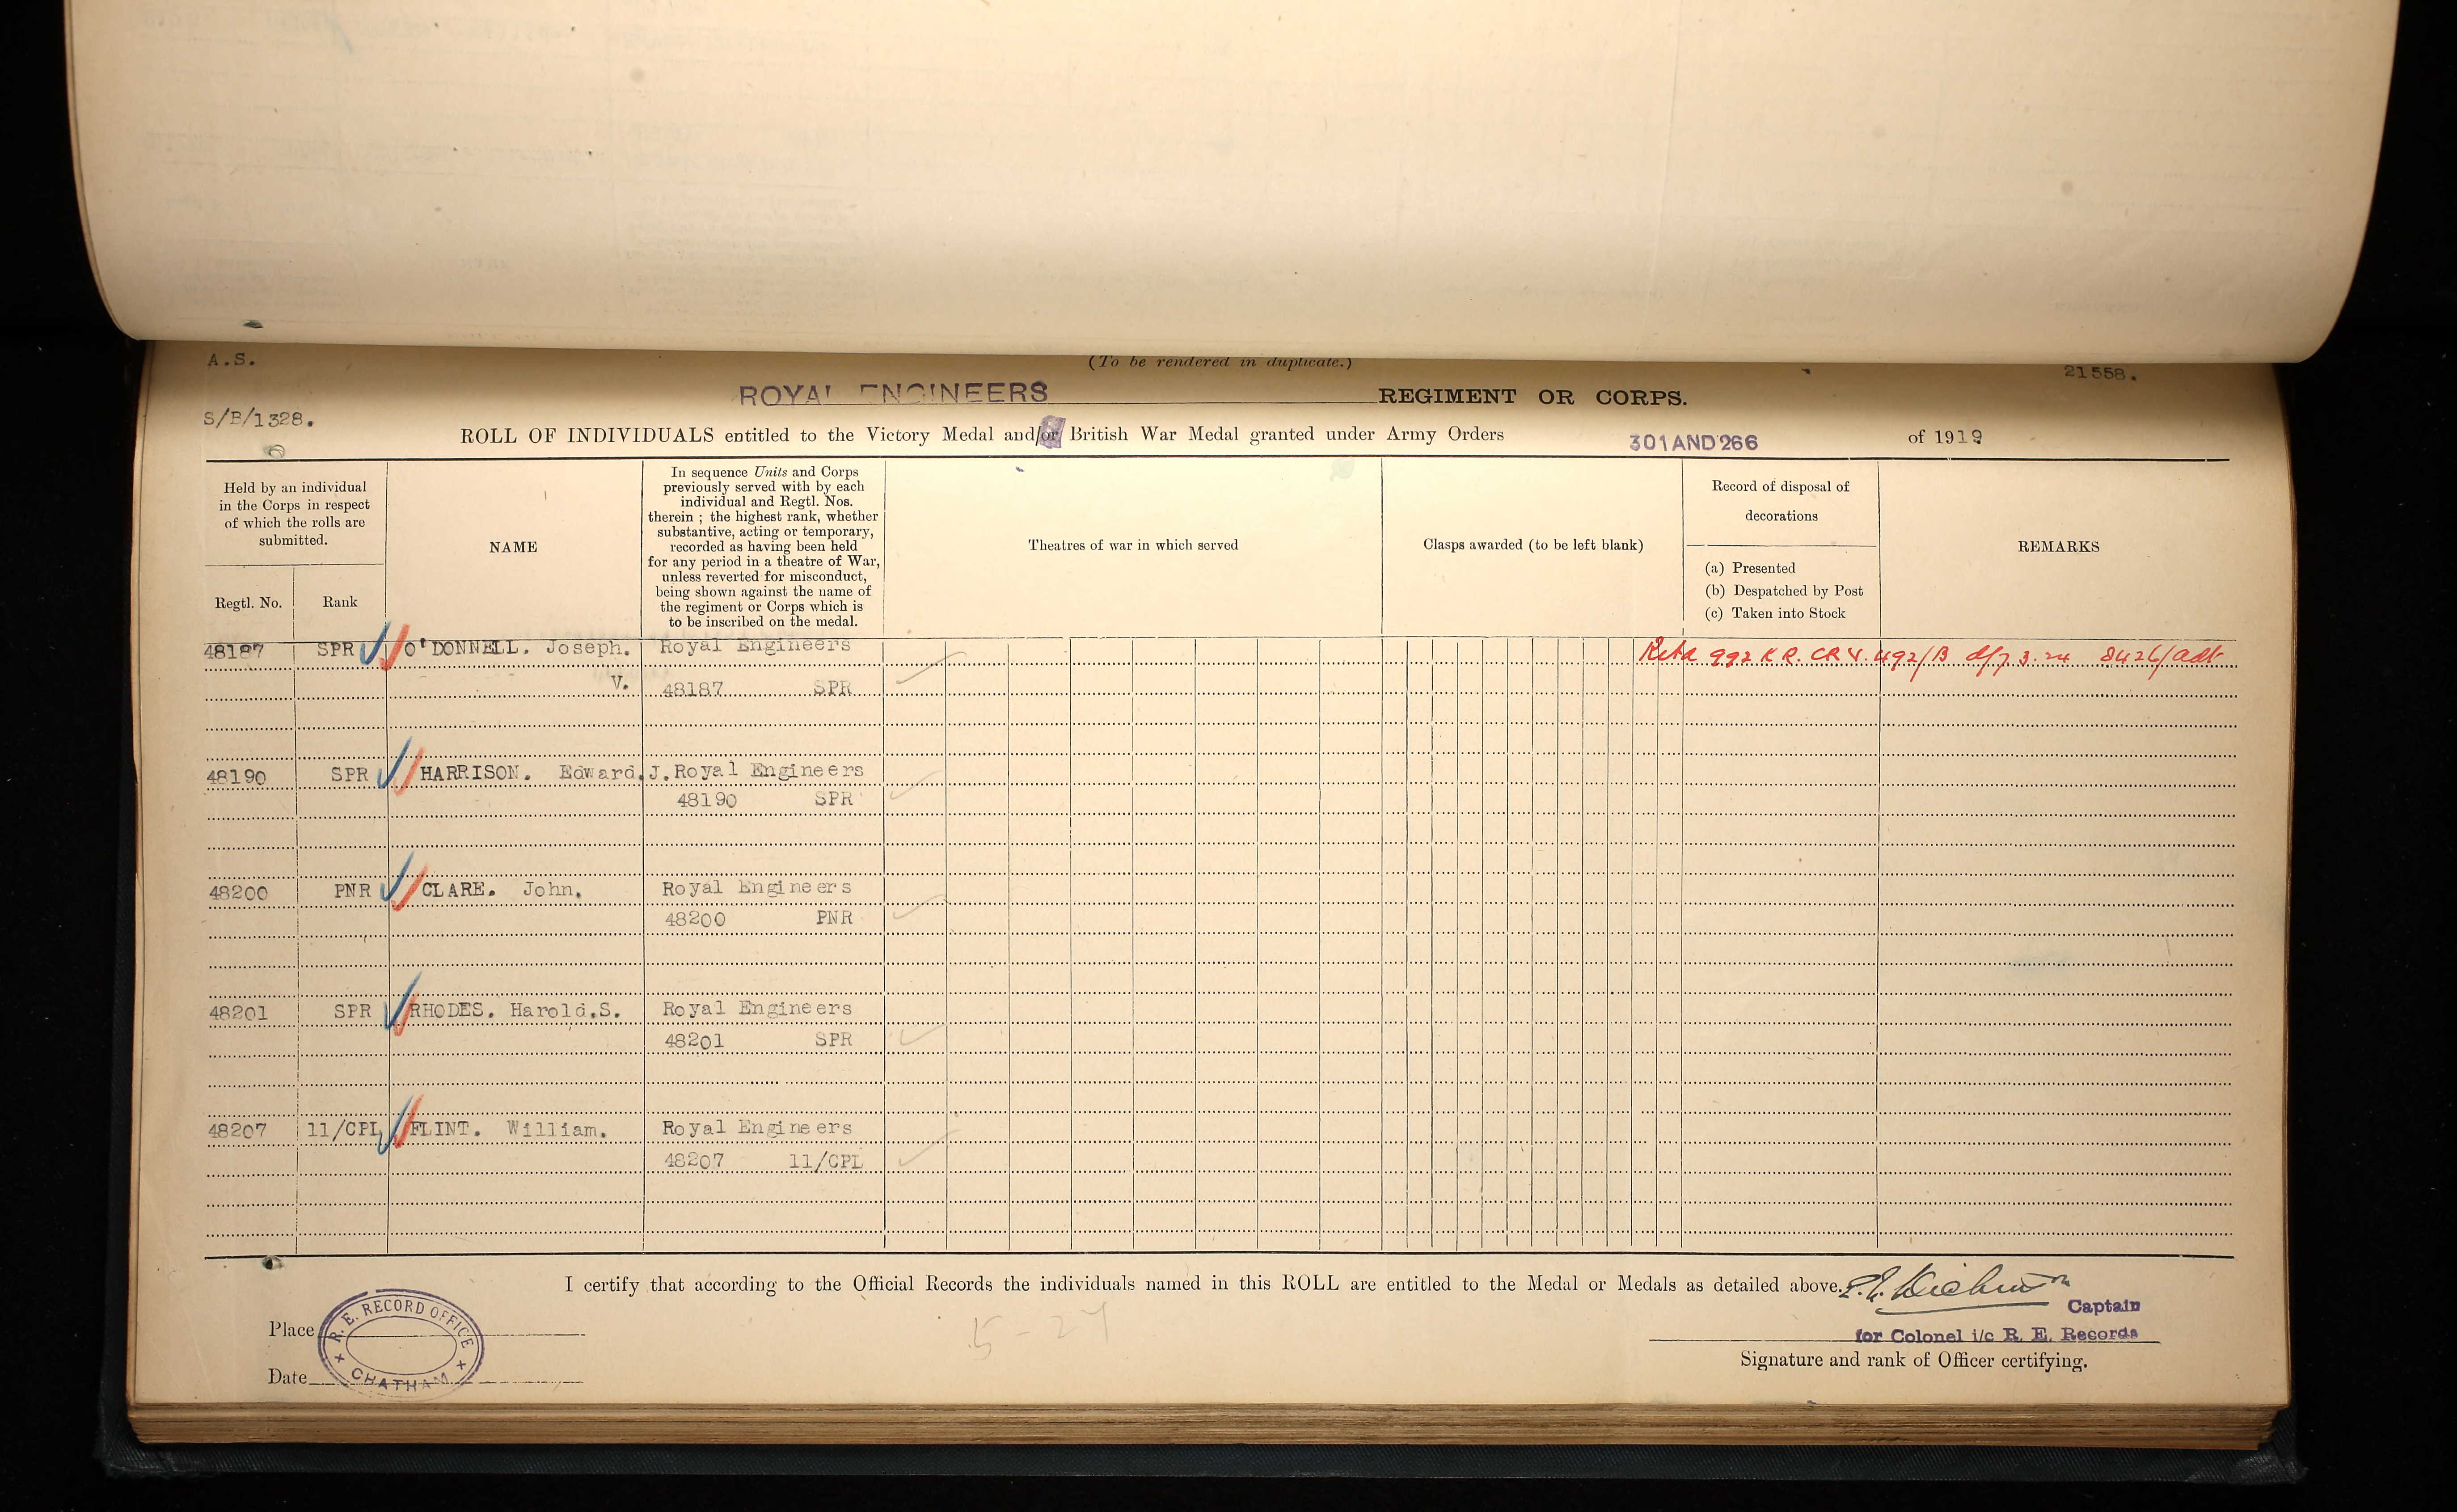 A.S.
(To be rendered in duplicate.)
21558.
ROYAL ENGINEERS REGIMENT OR CORPS.
S/B/1328.
ROLL OF INDIVIDUALS entitled to the Victory Medal and/or British War Medal granted under Army Orders 301 AND 266 of 1919
Held by an individual
in the Corps in respect
of which the rolls are
submitted.
Regtl. No.
Rank
NAME
In sequence Units and Corps
previously served with by each
individual and Regtl. Nos.
therein ; the highest rank, whether
substantive, acting or temporary,
recorded as having been held
for any period in a theatre of War,
unless reverted for misconduct,
being shown against the name of
the regiment or Corps which is
to be inscribed on the medal.
Theatres of war in which served
Clasps awarded (to be left blank)
Record of disposal of
decorations
(a) Presented
(b) Despatched by Post
(c) Taken into Stock
REMARKS
48187 SPR O'DONNELL. Joseph. Royal Engineers 992 K R. 492/B 3.24 8426/adt
V. 48187 SPR
48190 SPR HARRISON. Edward.J. Royal Engineers
48190 SPR
48200 PNR CLARE. John. Royal Engineers
48200 PNR
48201 SPR RHODES. Harold.S. Royal Engineers
48201 SPR
48207 11/CPL FLINT. William. Royal Engineers
48207 11/CPL
I certify that according to the Official Records the individuals named in this ROLL are entitled to the Medal or Medals as detailed above.
Captain
for Colonel i/c R. E. Records
Signature and rank of Officer certifying.
Place
Date
R. E. RECORD OFFICE
CHATHAM
5-27